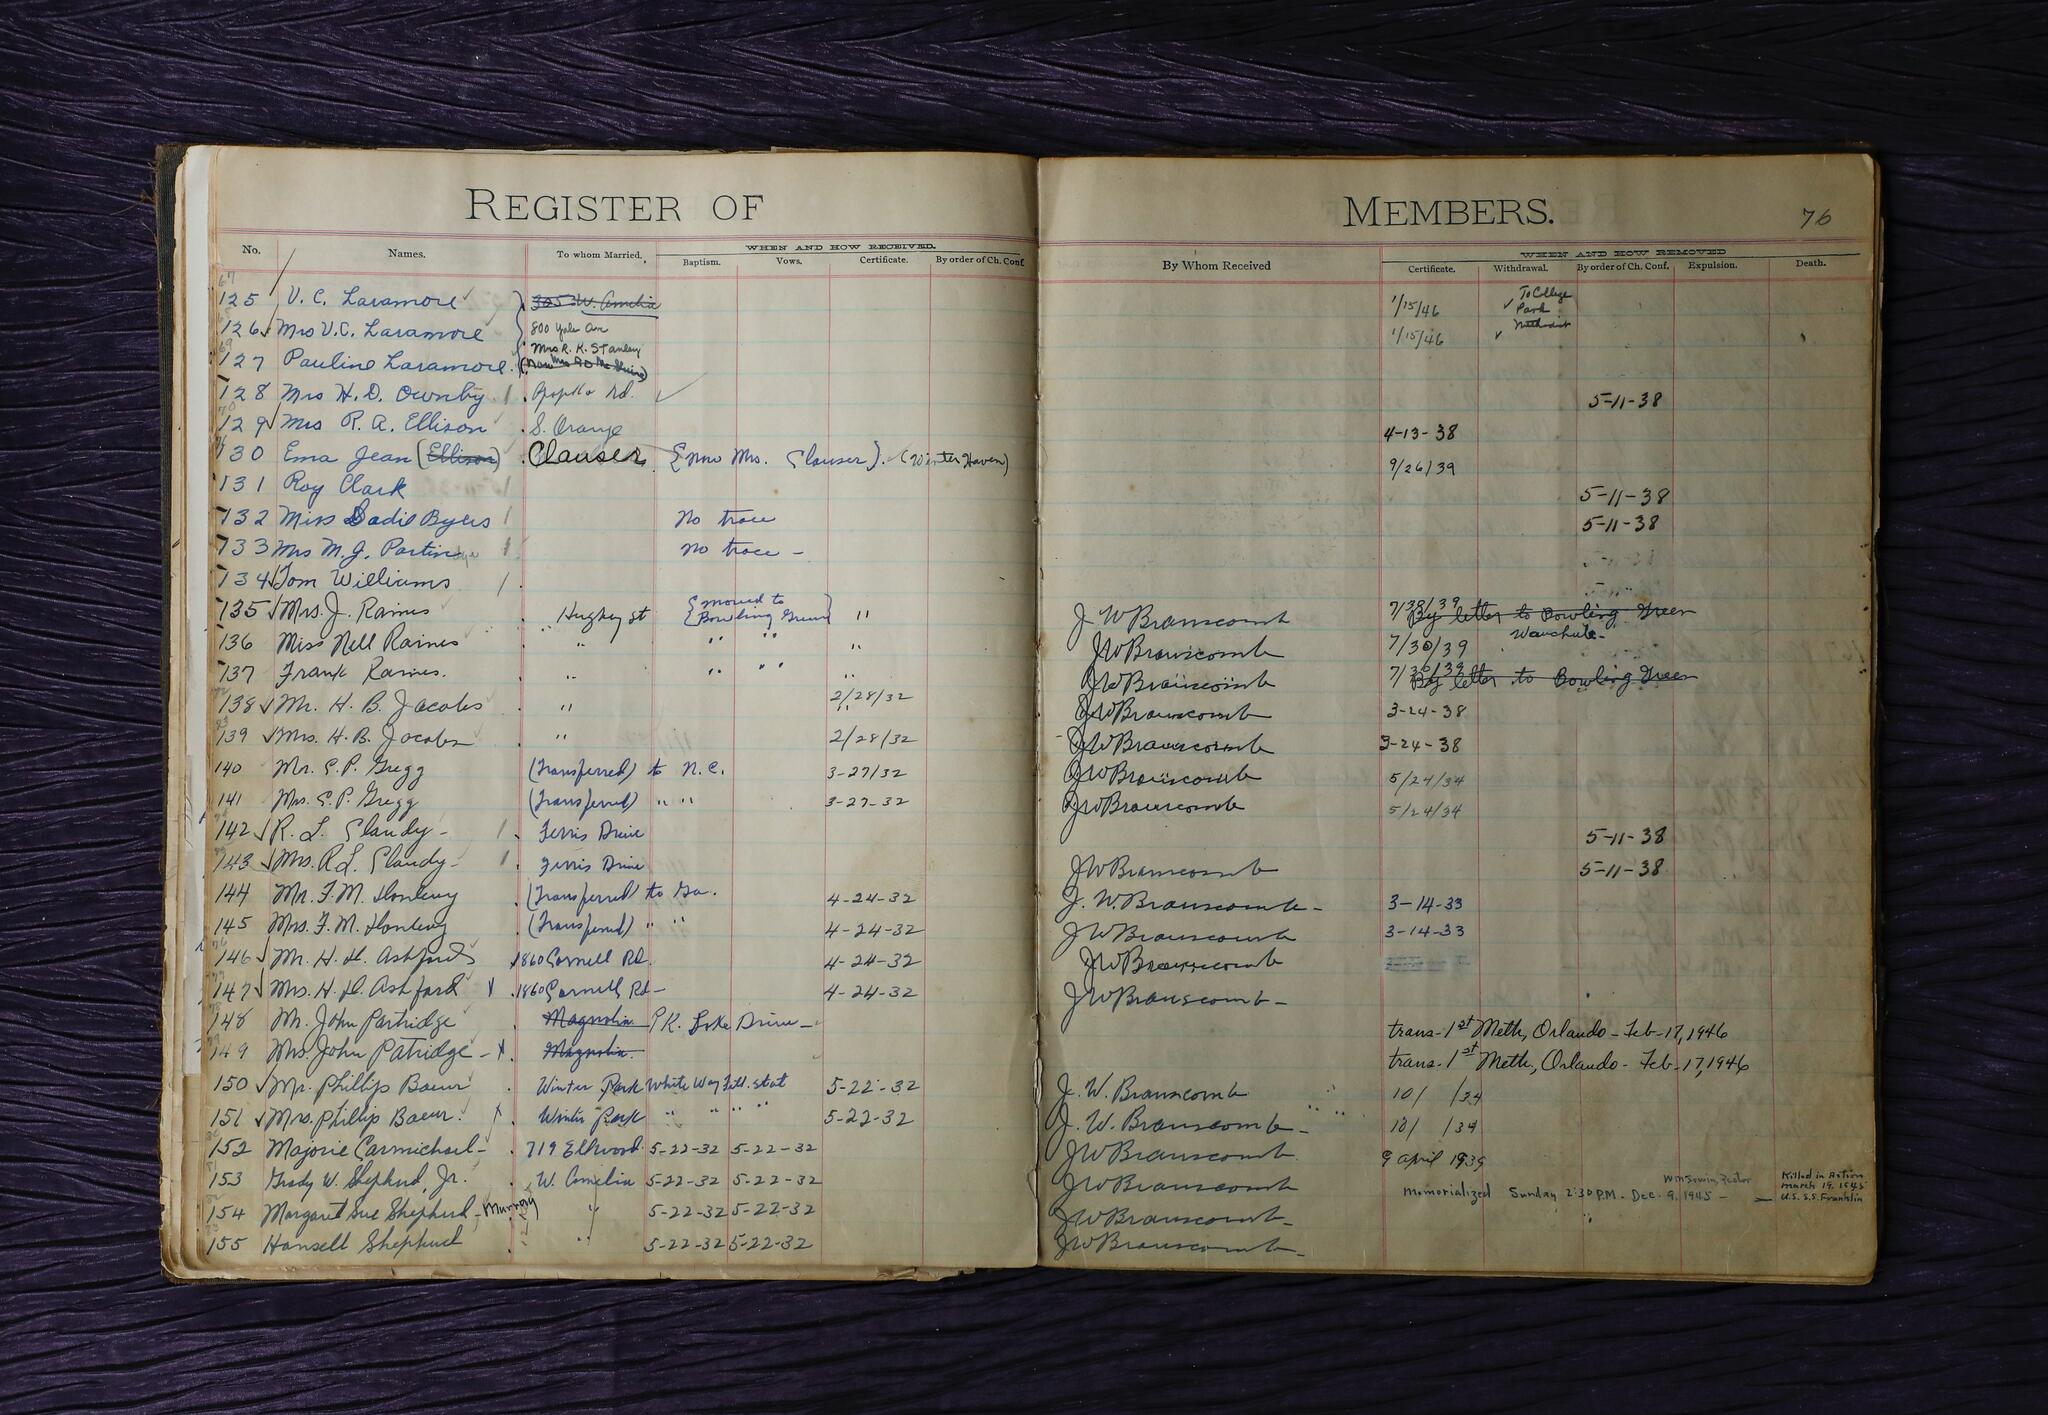 REGISTER OF MEMBERS. 76
No. Names. To whom Married. WHEN AND HOW RECEIVED. By Whom Received WHEN AND HOW REMOVED
Baptism. Vows. Certificate. By order of Ch. Conf. Certificate. Withdrawal. By order of Ch. Conf. Expulsion. Death.
125 V. C. Laramore 305 W. Amelia 1/15/46 To College Park
126 Mrs V. C. Laramore 800 Yale Ave 1/15/46
127 Pauline Laramore Mrs R. K. Stanley
128 Mrs H. D. Ownby Rd. 5-11-38
129 Mrs R. A. Ellison S. Orange 4-13-38
130 Ema Jean (Ellison) Clauser {now Mrs. Clauser}. (Winter Haven) 9/26/39
131 Roy Clark 5-11-38
132 Miss Sadie Byers No trace 5-11-38
133 Mrs M. J. No trace -
134 Tom Williams
135 Mrs. J. Raines Hughey St {moved to Bowling Green} " J W Branscomb 7/30/39 By letter to Bowling Green
136 Miss Nell Raines " " " " JWBranscomb 7/30/39 Wauchula-
137 Frank Raines. " " " " JWBranscomb 7/30/39 By letter to Bowling Green
138 Mr. H. B. Jacobs " 2/28/32 JWBranscomb 3-24-38
139 Mrs. H. B. Jacobs " 2/28/32 JWBranscomb 3-24-38
140 Mr. E. P. Gregg (Transferred) to N.C. 3-27/32 JWBranscomb 5/24/34
141 Mrs. E. P. Gregg (Transferred) " " 3-27-32 JWBranscomb 5/24/34
142 R. L. Clandy - Ferris Drive 5-11-38
143 Mrs. R L. Clandy - Ferris Drive JWBranscomb 5-11-38
144 Mr. F. M. (Transferred) to Ga. 4-24-32 J. W. Branscomb - 3-14-33
145 Mrs. F. M. (Transferred) " " 4-24-32 J W Branscomb 3-14-33
146 Mr. H. H. Ashford 1860 Cornell Rd. 4-24-32 JWBranscomb
147 Mrs. H. H. Ashford 1860 Cornell Rd - 4-24-32 JWBranscomb -
148 Mr. John Partridge Magnolia PK. Lake Drive - trans. 1st Meth, Orlando - Feb-17, 1946
149 Mrs. John Patridge - Magnolia. trans. 1st Meth, Orlando - Feb-17, 1946
150 Mr. Phillip Baeur Winter Park White Way Fill. stat 5-22-32 J. W. Branscomb 10/ /34
151 Mrs. Phillip Baeur. Winter Park " " " " 5-22-32 J. W. Branscomb - 10/ /34
152 Majorie Carmichael - 719 Ellwood 5-22-32 5-22-32 JWBranscomb 9 April 1939
153 Grady W. Shepherd, Jr. W. Amelia 5-22-32 5-22-32 JWBranscomb Memorialized Sunday 2:30 P.M. - Dec. 9, 1945 - Killed in Action March 19, 1945 U.S.S. Franklin
154 Margaret Sue Shepherd - Murray " 5-22-32 5-22-32 JWBranscomb -
155 Hansell Shepherd " 5-22-32 5-22-32 JWBranscomb -